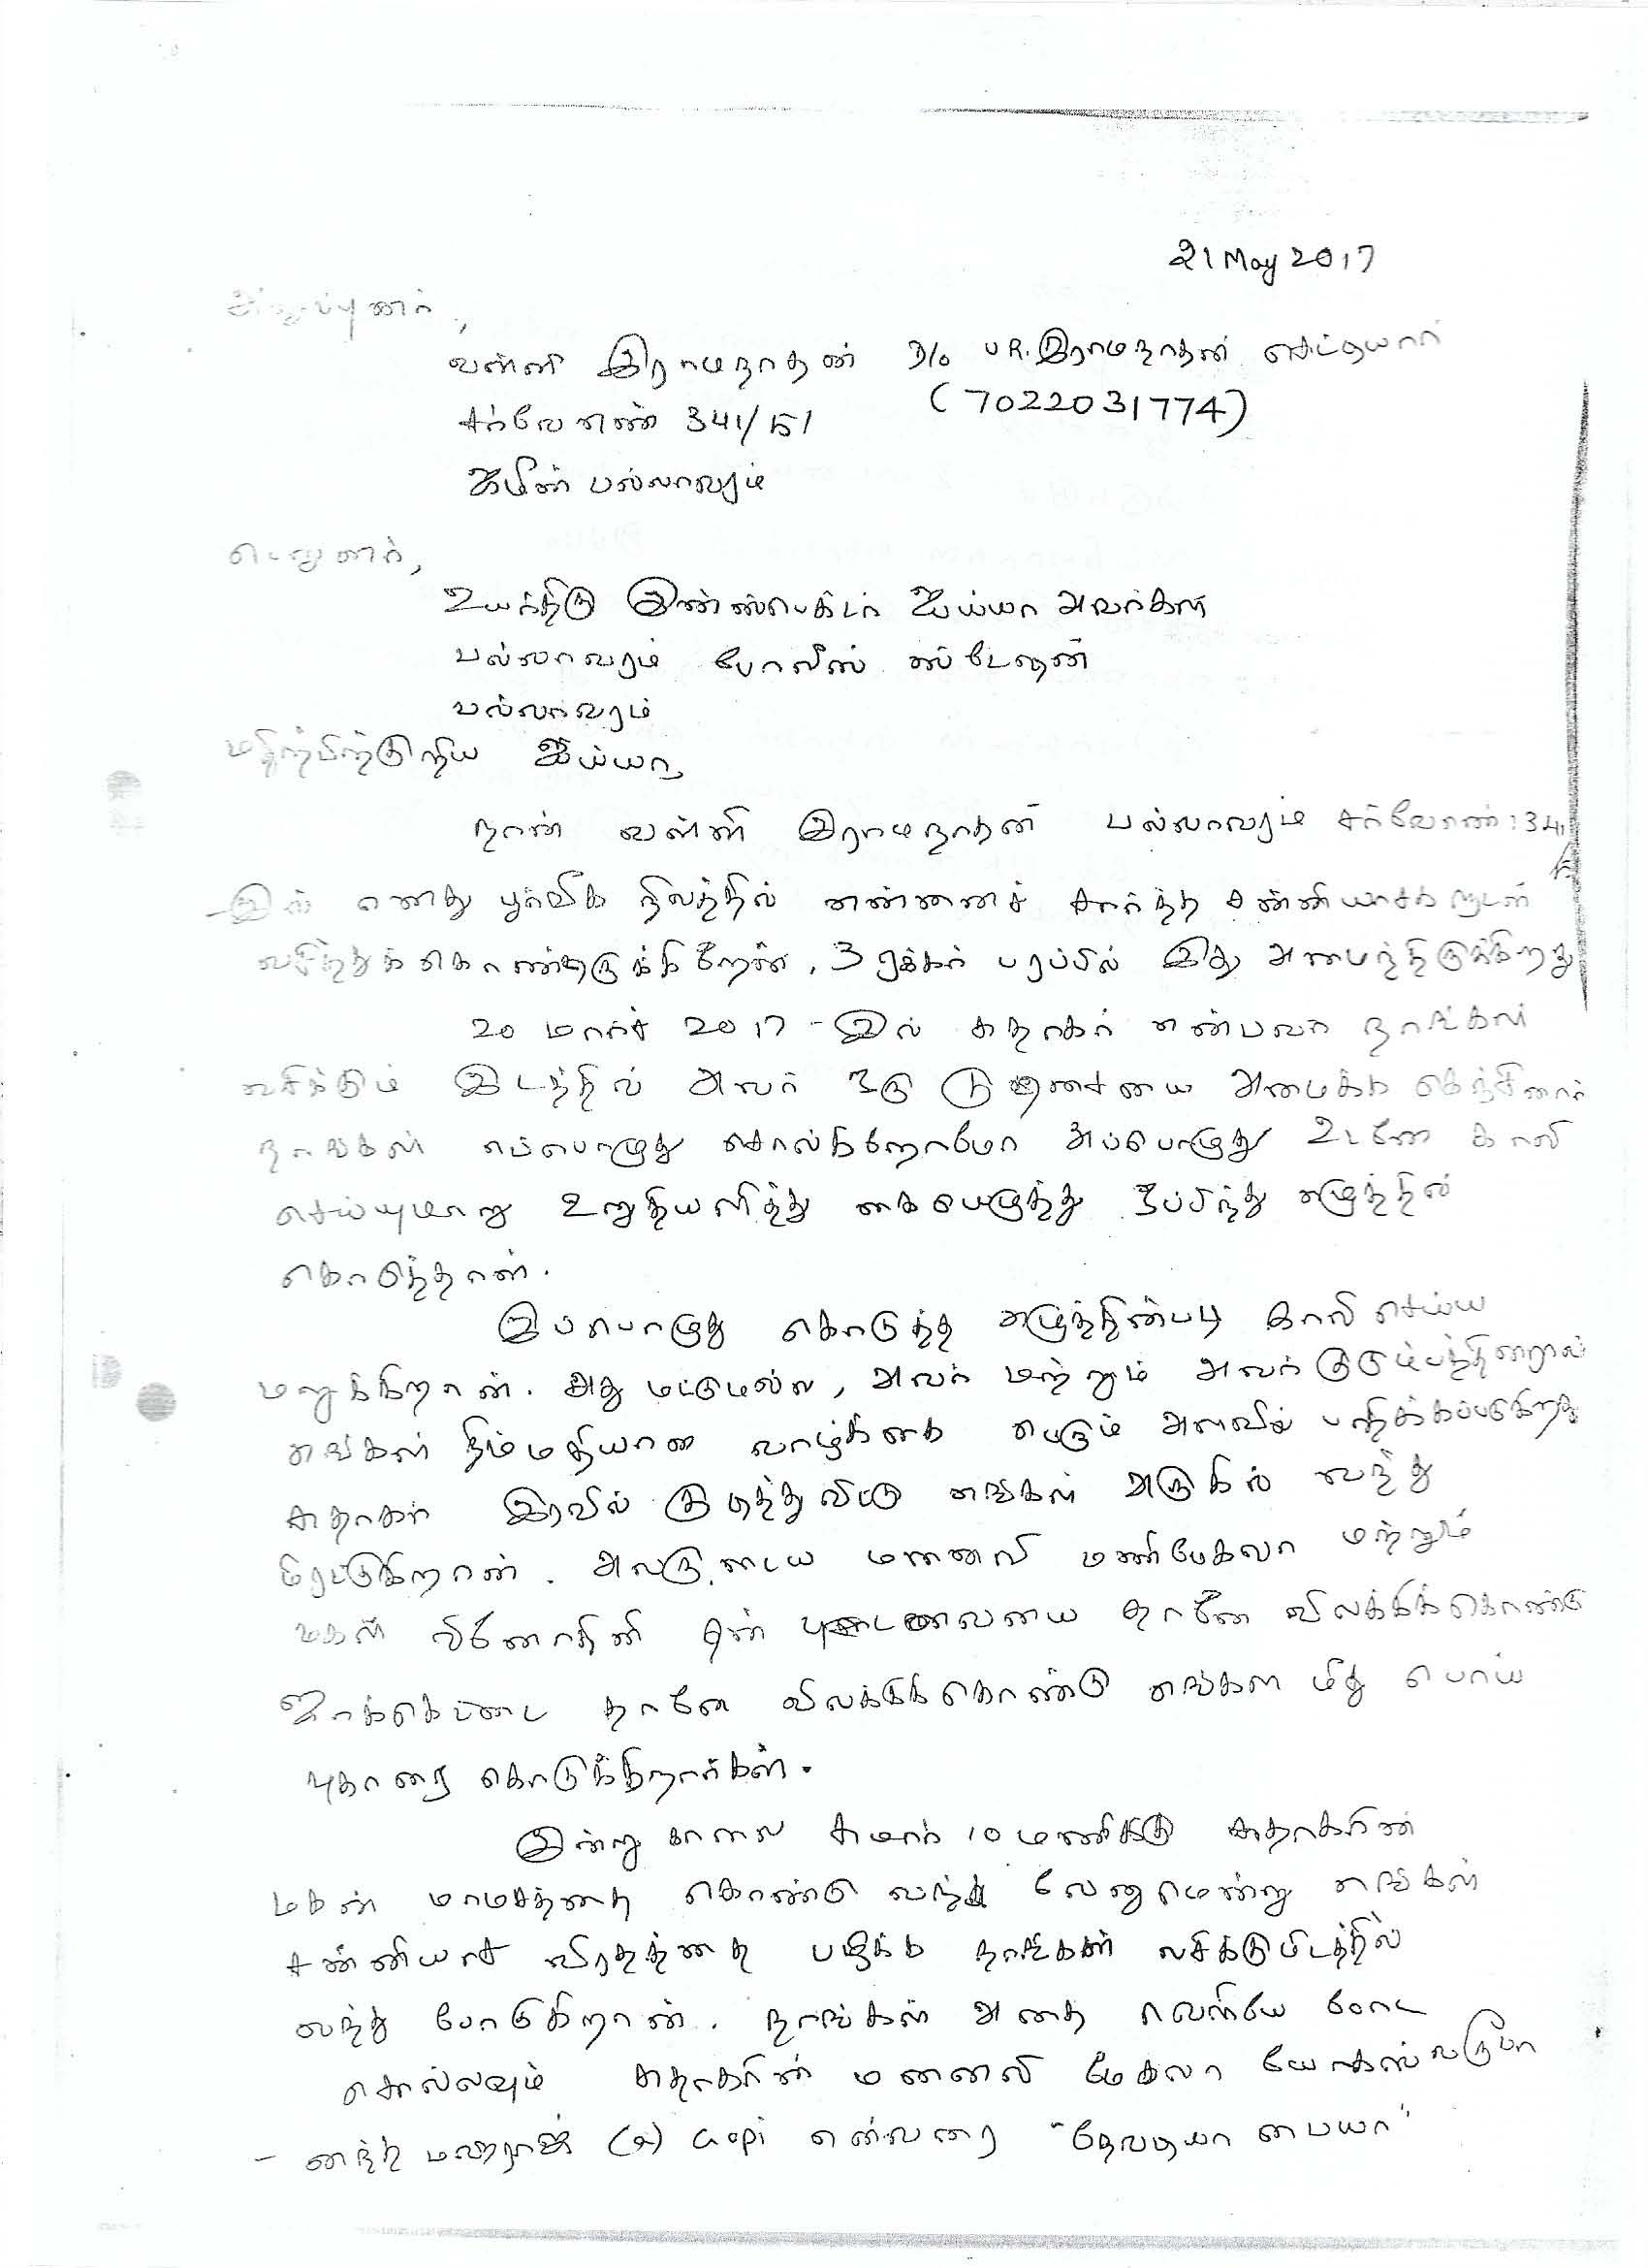 21 May 2017
அனுப்புனர்,
வள்ளி இராமநாதன் D/o UR. இராமநாதன் செட்டியார்
(7022031774)
சர்வே எண் 341/1
ஜமீன் பல்லாவரம்
பெறுனர்,
உயர்திரு இன்ஸ்பெக்டர் ஐய்யா அவர்கள்
பல்லாவரம் போலீஸ் ஸ்டேஷன்
பல்லாவரம்
மதிற்பிற்குறிய ஐய்யா,
நான் வள்ளி இராமநாதன் பல்லாவரம் சர்வே எண்: 341
இல் எனது பூர்வீக நிலத்தில் என்னைச் சார்ந்த சன்னியாசகளுடன்
வசித்துக்கொண்டிருக்கிறேன், 3 ஏக்கர் பரப்பில் இது அமைந்திருக்கிறது
20 மார்ச் 2017 - இல் சுதாகர் என்பவர் நாங்கள்
வசிக்கும் இடத்தில் அவர் ஒரு குடிசையை அமைக்க கெஞ்சினார்
நாங்கள் எப்பொழுது சொல்கிறோமோ அப்பொழுது உடனே காலி
செய்யுமாறு உறுதியளித்து கையெழுத்து ஒப்பித்து எழுத்தில்
கொடுத்தான்.
இப்பொழுது கொடுத்த எழுத்தின்படி காலி செய்ய
மறுக்கிறான். அது மட்டுமல்ல, அவர் மற்றும் அவர் குடும்பத்தினறால்
எங்கள் நிம்மதியான வாழ்க்கை பெரும் அளவில் பாதிக்கப்படுகிறது
சுதாகர் இரவில் குடித்துவிட்டு எங்கள் அருகில் வந்து
மிரட்டுகிறான். அவருடைய மனைவி மணிமேகலா மற்றும்
மகள் வினோதினி தன் புடவையை தானே விலக்கிக்கொண்டு
ஜாக்கெட்டை தானே விலக்குக்கொண்டு எங்கள் மீது பொய்
புகாரை கொடுக்கிறார்கள்.
இன்று காலை சுமார் 10 மணிக்கு சுதாகரின்
மகன் மாமசத்தை கொண்டு வந்து வேணுமென்று எங்கள்
சன்னியாச விரதத்தை பழிக்க நாங்கள் வசிக்குமிடத்தில்
வந்து போடுகிறான். நாங்கள் அதை வெளியே போட
சொல்லவும் சுதாகரின் மனைவி மேகலா யோகஸ்வருபா
- னந்த மஹராஜ் (a) Gopi என்பவரை "தேவடியா பையா"